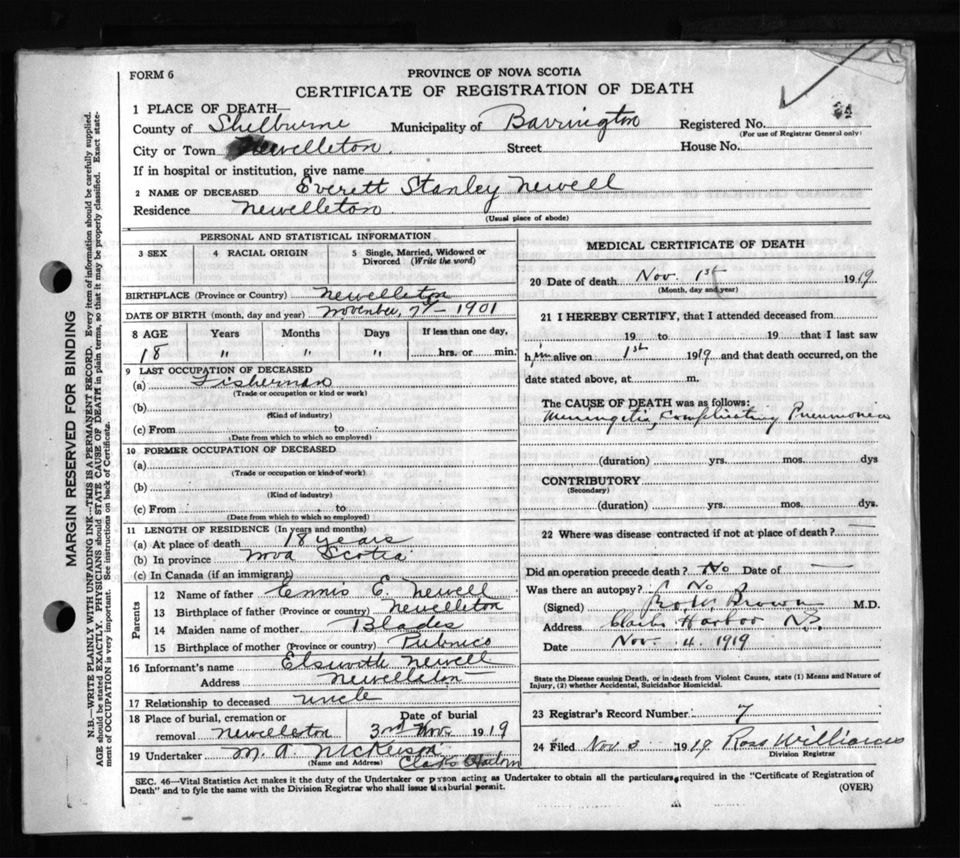 FORM 6
PROVINCE OF NOVA SCOTIA
CERTIFICATE OF REGISTRATION OF DEATH
1 PLACE OF DEATH—
County of Shelburne Municipality of Barrington Registered No.
(For use of Registrar General only)
City or Town Newelleton. Street House No.
If in hospital or institution, give name
2 NAME OF DECEASED Everett Stanley Newell
Residence Newelleton.
(Usual place of abode)
PERSONAL AND STATISTICAL INFORMATION
3 SEX 4 RACIAL ORIGIN 5 Single, Married, Widowed or Divorced (Write the word)
BIRTHPLACE (Province or Country) Newelleton
DATE OF BIRTH (month, day and year) November, 1901
8 AGE Years Months Days If less than one day,
18 " " " hrs. or min.
9 LAST OCCUPATION OF DECEASED
(a) Fisherman
(Trade or occupation or kind or work)
(b)
(Kind of industry)
(c) From to
(Date from which to which so employed)
10 FORMER OCCUPATION OF DECEASED
(a)
(Trade or occupation or kind of work)
(b)
(Kind of industry)
(c) From to
(Date from which to which so employed)
11 LENGTH OF RESIDENCE (In years and months)
(a) At place of death 18 years
(b) In province Nova Scotia
(c) In Canada (if an immigrant)
Parents
12 Name of father Ennis E. Newell
13 Birthplace of father (Province or country) Newelleton
14 Maiden name of mother Blades
15 Birthplace of mother (Province or country) Pubnico
16 Informant's name Elsworth Newell
Address Newelleton
17 Relationship to deceased uncle
18 Place of burial, cremation or removal Newelleton Date of burial 3rd Nov. 1919
19 Undertaker M. A. Nickerson
(Name and Address) Clarks Harbor
MEDICAL CERTIFICATE OF DEATH
20 Date of death Nov. 1st 1919
(Month, day and year)
21 I HEREBY CERTIFY, that I attended deceased from
19 to 19 that I last saw
him alive on 1st 1919 and that death occurred, on the
date stated above, at m.
The CAUSE OF DEATH was as follows:
Meningetis, Complicating Pneumonia
(duration) yrs. mos. dys
CONTRIBUTORY
(Secondary)
(duration) yrs. mos. dys.
22 Where was disease contracted if not at place of death?
Did an operation precede death? No Date of —
Was there an autopsy? No
(Signed) Brown M.D.
Address Clarks Harbor N.S.
Date Nov. 4 1919
State the Disease causing Death, or in death from Violent Causes, state (1) Means and Nature of
Injury, (2) whether Accidental, Suicidal or Homicidal.
23 Registrar's Record Number 7
24 Filed Nov 1919 Ross Williams
Division Registrar
SEC. 46—Vital Statistics Act makes it the duty of the Undertaker or person acting as Undertaker to obtain all the particulars required in the "Certificate of Registration of
Death" and to fyle the same with the Division Registrar who shall issue the burial permit. (OVER)
MARGIN RESERVED FOR BINDING
N.B.—WRITE PLAINLY WITH UNFADING INK—THIS IS A PERMANENT RECORD. Every item of information should be carefully supplied.
AGE should be stated EXACTLY. PHYSICIANS should STATE CAUSE OF DEATH in plain terms, so that it may be properly classified. Exact state-
ment of OCCUPATION is very important. See instructions on back of Certificate.